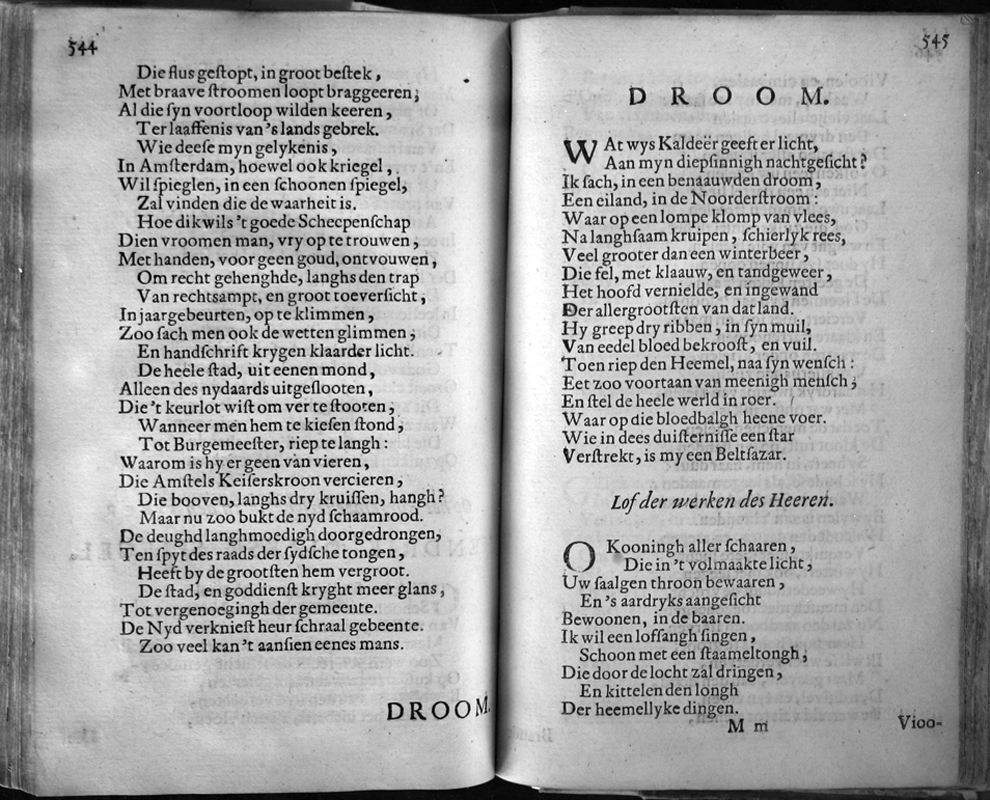 544
Die flus geſtopt, in groot beſtek,
Met braave ſtroomen loopt braggeeren;
Al die ſyn voortloop wilden keeren,
Ter laaffenis van 's lands gebrek.
Wie deeſe myn gelykenis,
In Amſterdam, hoewel ook kriegel,
Wil ſpieglen, in een ſchoonen ſpiegel,
Zal vinden die de waarheit is.
Hoe dikwils 't goede Scheepenſchap
Dien vroomen man, vry op te trouwen,
Met handen, voor geen goud, ontvouwen,
Om recht gehenghde, langhs den trap
Van rechtsampt, en groot toeverſicht,
In jaargebeurten, op te klimmen,
Zoo ſach men ook de wetten glimmen,
En handſchrift krygen klaarder licht.
De heele ſtad, uit eenen mond,
Alleen des nydaards uitgeſlooten,
Die 't keurlot wiſt om ver te ſtooten;
Wanneer men hem te kieſen ſtond,
Tot Burgemeeſter, riep te langh:
Waarom is hy er geen van vieren,
Die Amſtels Keiſerskroon vercieren,
Die booven, langhs dry kruiſſen, hangh?
Maar nu zoo bukt de nyd ſchaamrood.
De deughd langhmoedigh doorgedrongen,
Ten ſpyt des raads der ſydſche tongen,
Heeft by de grootſten hem vergroot.
De ſtad, en goddienſt kryght meer glans,
Tot vergenoegingh der gemeente.
De Nyd verknieſt heur ſchraal gebeente.
Zoo veel kan 't aanſien eenes mans.
DROOM.
545
DROOM.
WAt wys Kaldeër geeft er licht,
Aan myn diepſinnigh nachtgeſicht?
Ik ſach, in een benaauwden droom,
Een eiland, in de Noorderſtroom:
Waar op een lompe klomp van vlees,
Na langhſaam kruipen, ſchierlyk rees,
Veel grooter dan een winterbeer,
Die fel, met klaauw, en tandgeweer,
Het hoofd vernielde, en ingewand
Der allergrootſten van dat land.
Hy greep dry ribben, in ſyn muil,
Van eedel bloed bekrooſt, en vuil.
Toen riep den Heemel, naa ſyn wenſch:
Eet zoo voortaan van meenigh menſch;
En ſtel de heele werld in roer.
Waar op die bloedbalgh heene voer.
Wie in dees duiſterniſſe een ſtar
Verſtrekt, is my een Beltſazar.
Lof der werken des Heeren.
O Kooningh aller ſchaaren,
Die in 't volmaakte licht,
Uw ſaalgen throon bewaaren,
En 's aardryks aangeſicht
Bewoonen, in de baaren.
Ik wil een loffangh ſingen,
Schoon met een ſtaameltongh;
Die door de locht zal dringen,
En kittelen den longh
Der heemellyke dingen.
M m
Vioo-